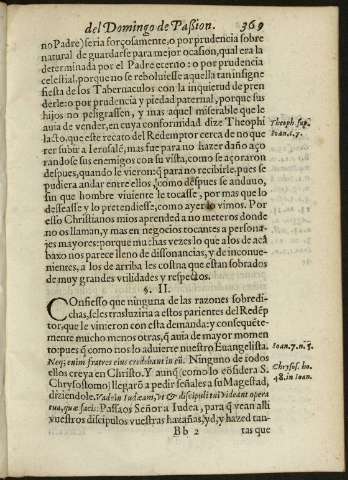 del Domingo de Paßion. 369
no Padre) seria forçosamente, o por prudencia sobre
natural de guardarse para mejor ocasion, qual era la
determinada por el Padre eterno: o por prudencia
celestial, porque no se reboluiesse aquella tan insigne
fiesta de los Tabernaculos con la inquietud de pren
derle: o por prudencia y piedad paternal, porque sus
hijos no peligrassen, y mas aquel miserable que le
auia de vender, en cuya conformidad dize Theophi
lacto, que este recato del Redemptor cerca de no que
rer subir a Ierusalẽ, mas fue para no hazer daño aço
randose sus enemigos con su vista, como se açoraron
despues, quando le vieron: q̃ para no recibirle, pues se
pudiera andar entre ellos, como despues se anduuo,
sin que hombre viuiente le tocasse, por mas que lo
desseasse y lo pretendiesse, como ayer lo vimos. Por
esso Christianos mios aprended a no meteros donde
no os llaman, y mas en negocios tocantes a persona-
jes mayores: porque muchas vezes lo que a los de acá
baxo nos parece lleno de dissonancias, y de inconue-
nientes, a los de arriba les consta que estan fobrados
de muy grandes vtilidades y respectos.
Theoph. sup.
Ioan. c. 7.
§. II.
COnfiesso que ninguna de las razones sobredi-
chas, se les trasluziria a estos parientes del Redẽp
tor, que le vinieron con esta demanda: y consequẽte-
mente mucho menos otras, q̃ auia de mayor momen
to: pues q̃ como nos lo aduierte nuestro Euangelista.
Neq; enim fratres eius credebant in eũ. Ninguno de todos
ellos creya en Christo. Y aunq̃ (como lo cõsidera S.
Chrysostomo) llegarõ a pedir señales a su Magestad,
diziendole. Vade in Iudæam, vt & discipuli tui videant opera
tua, quæ facis: Passaos Señor a Iudea, para q̃ vean alli
vuestros discipulos vuestras hazañas, yd, y hazed tan-
Ioan. 7. n. 5.
Chrysos. ho.
48. in Ioan.
Bb 2 tas que